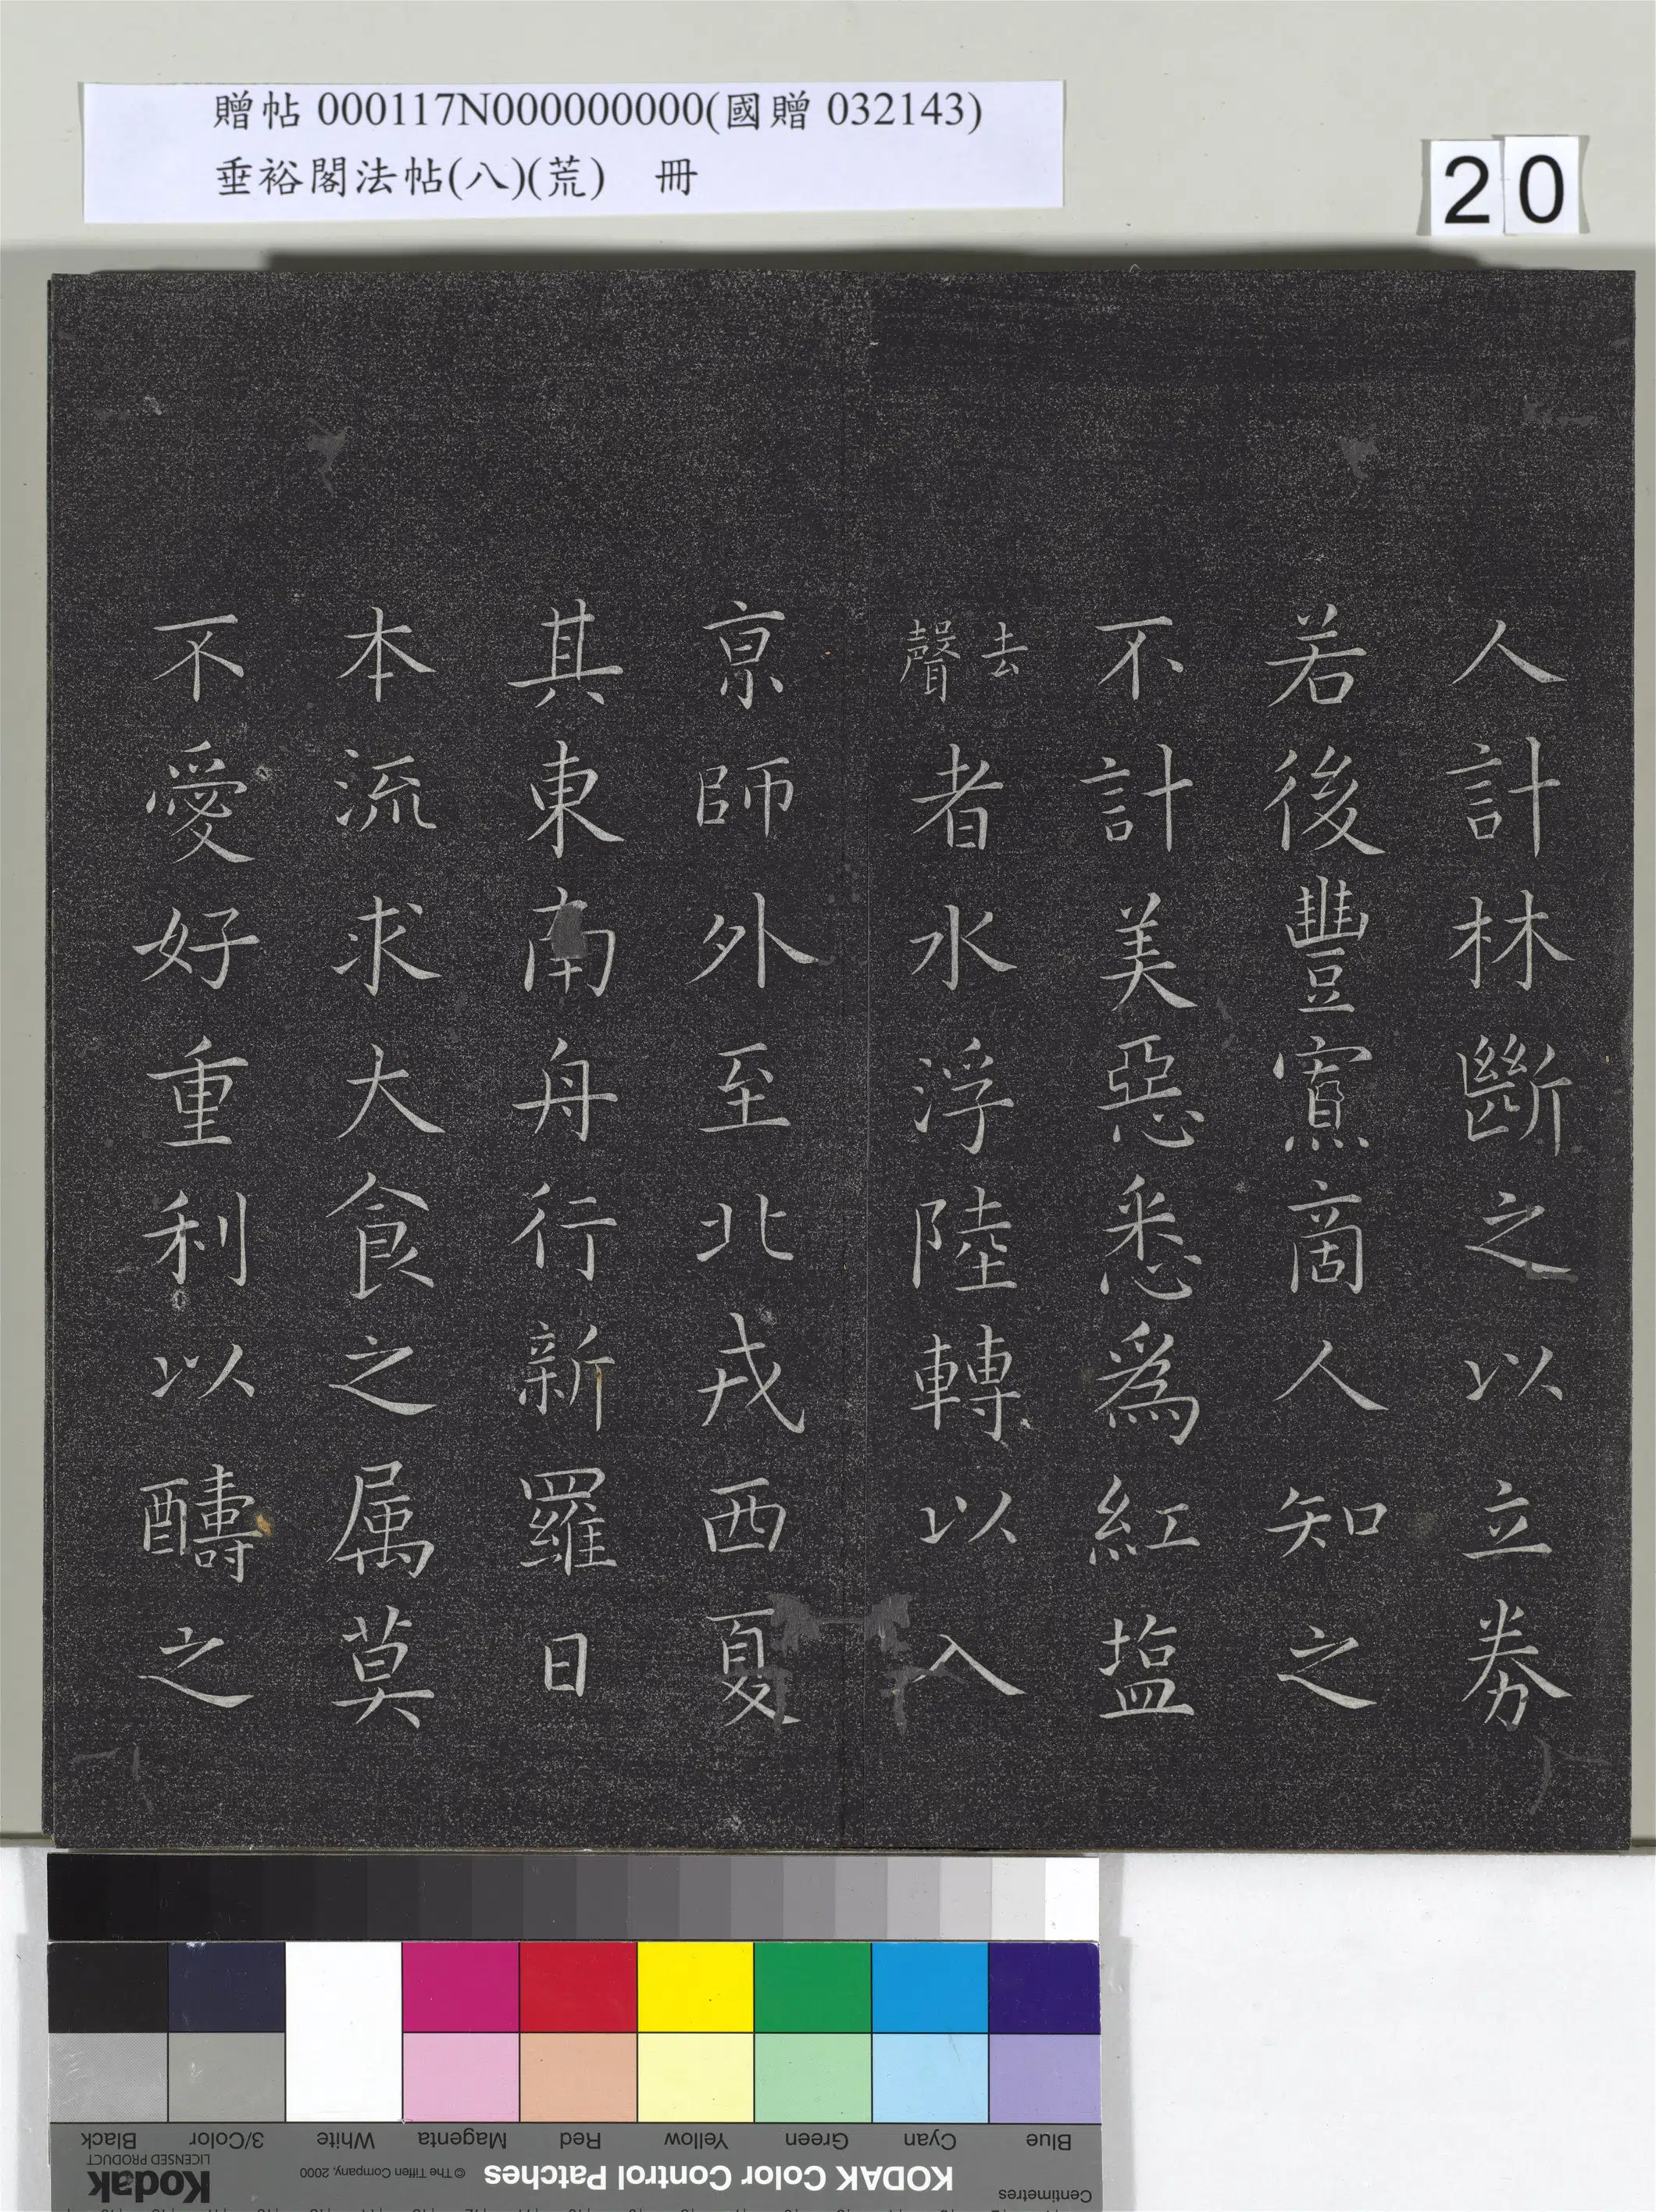 贈帖 000117N000000000(國贈 032143)
垂裕閣法帖(八)(荒) 冊
20
人計林斷之以立券
若後豐寡商人知之
不計美惡悉為紅塩
去聲者水浮陸轉以入
京師外至北戎西夏
其東南舟行新羅日
本流求大食之属莫
不愛好重利以醻之
Blue Cyan Green Yellow Red Magenta White 3/Color Black
Centimetres
KODAK Color Control Patches © The Tiffen Company, 2000 Kodak
LICENSED PRODUCT